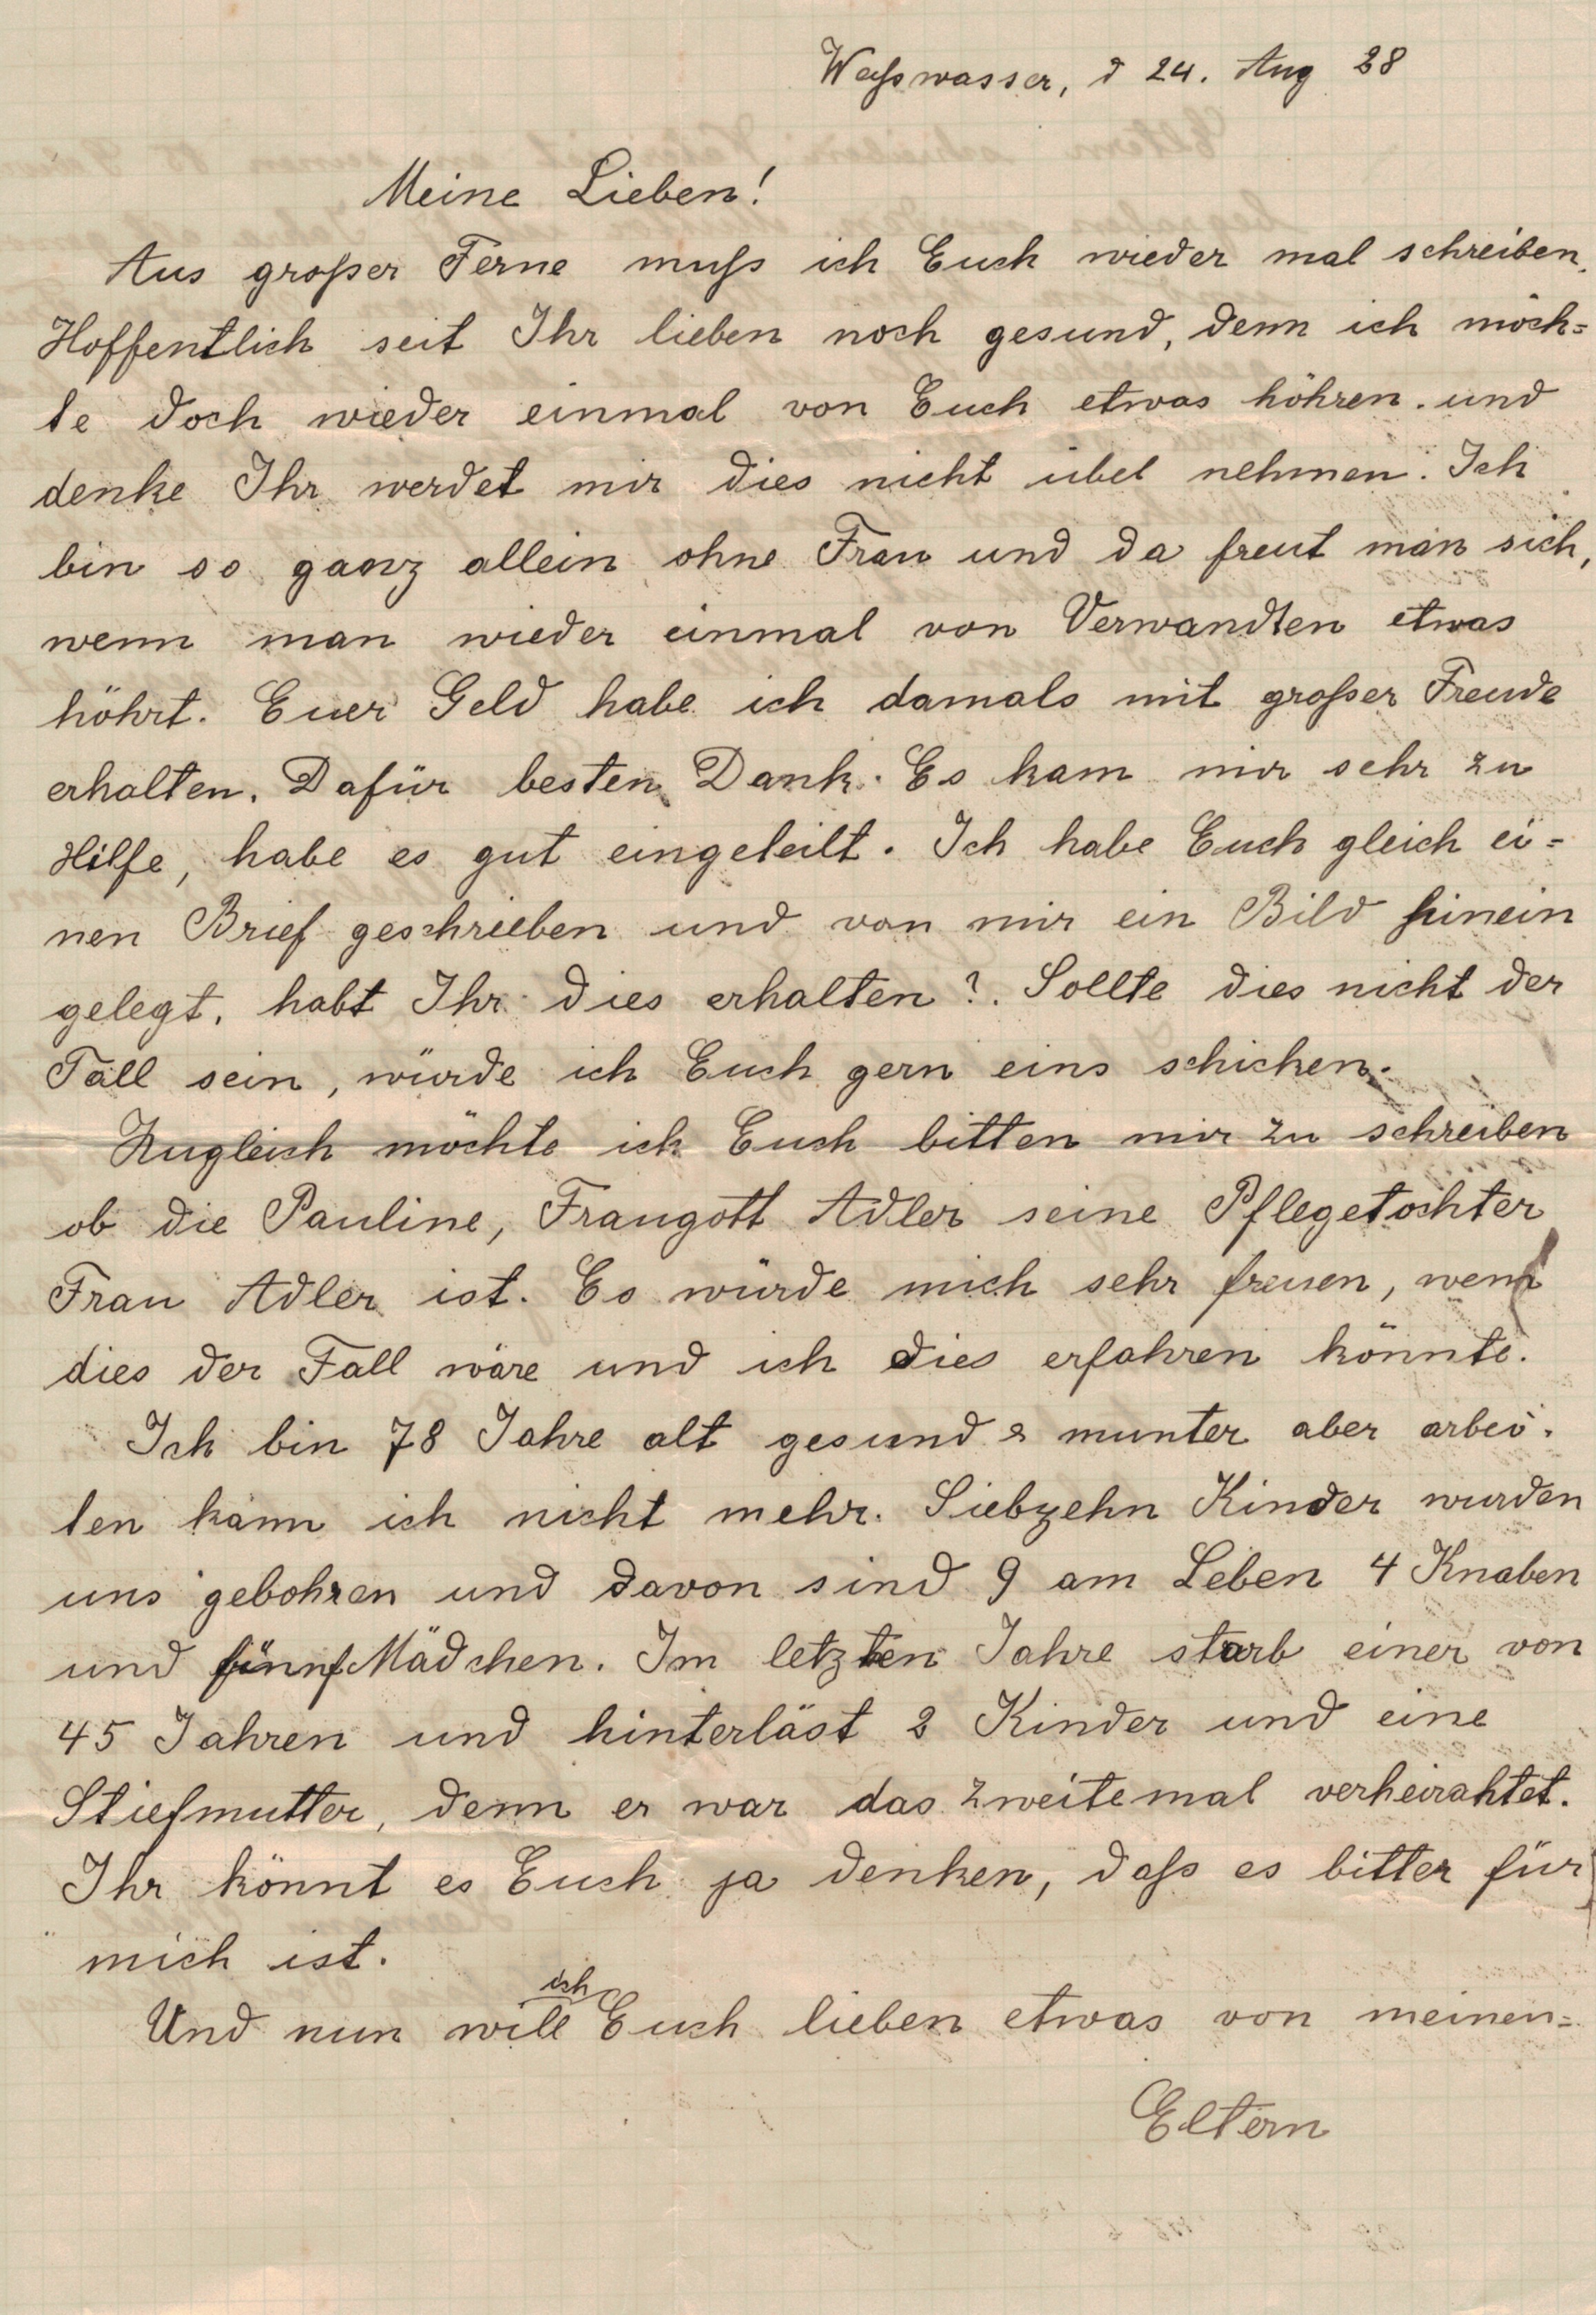 Weißwasser, d 24. Aug 28
Meine Lieben!
Aus großer Ferne muß ich Euch wieder mal schreiben.
Hoffentlich seit Ihr lieben noch gesund, denn ich möch=
te doch wieder einmal von Euch etwas höhren. und
denke Ihr werdet mir dies nicht übel nehmen. Ich
bin so ganz allein ohne Frau und da freut man sich,
wenn man wieder einmal von Verwandten etwas
höhrt. Euer Geld habe ich damals mit großer Freude
erhalten. Dafür besten Dank. Es kam mir sehr zu
Hilfe, habe es gut eingeteilt. Ich habe Euch gleich ei=
nen Brief geschrieben und von mir ein Bild hinein
gelegt, habt Ihr dies erhalten?. Sollte dies nicht der
Fall sein, würde ich Euch gern eins schicken.
Zugleich möchte ich Euch bitten mir zu schreiben
ob die Pauline, Traugott Adler seine Pflegetochter
Frau Adler ist. Es würde mich sehr freuen, wenn
dies der Fall wäre und ich dies erfahren könnte.
Ich bin 78 Jahre alt gesund & munter aber arbei-
ten kann ich nicht mehr. Siebzehn Kinder wurden
uns gebohren und davon sind 9 am Leben 4 Knaben
und fünf Mädchen. Im letzten Jahre starb einer von
45 Jahren und hinterläst 2 Kinder und eine
Stiefmutter, denn er war das zweitemal verheirahtet.
Ihr könnt es Euch ja denken, daß es bitter für
mich ist.
Und nun will ich Euch lieben etwas von meinen=
Eltern